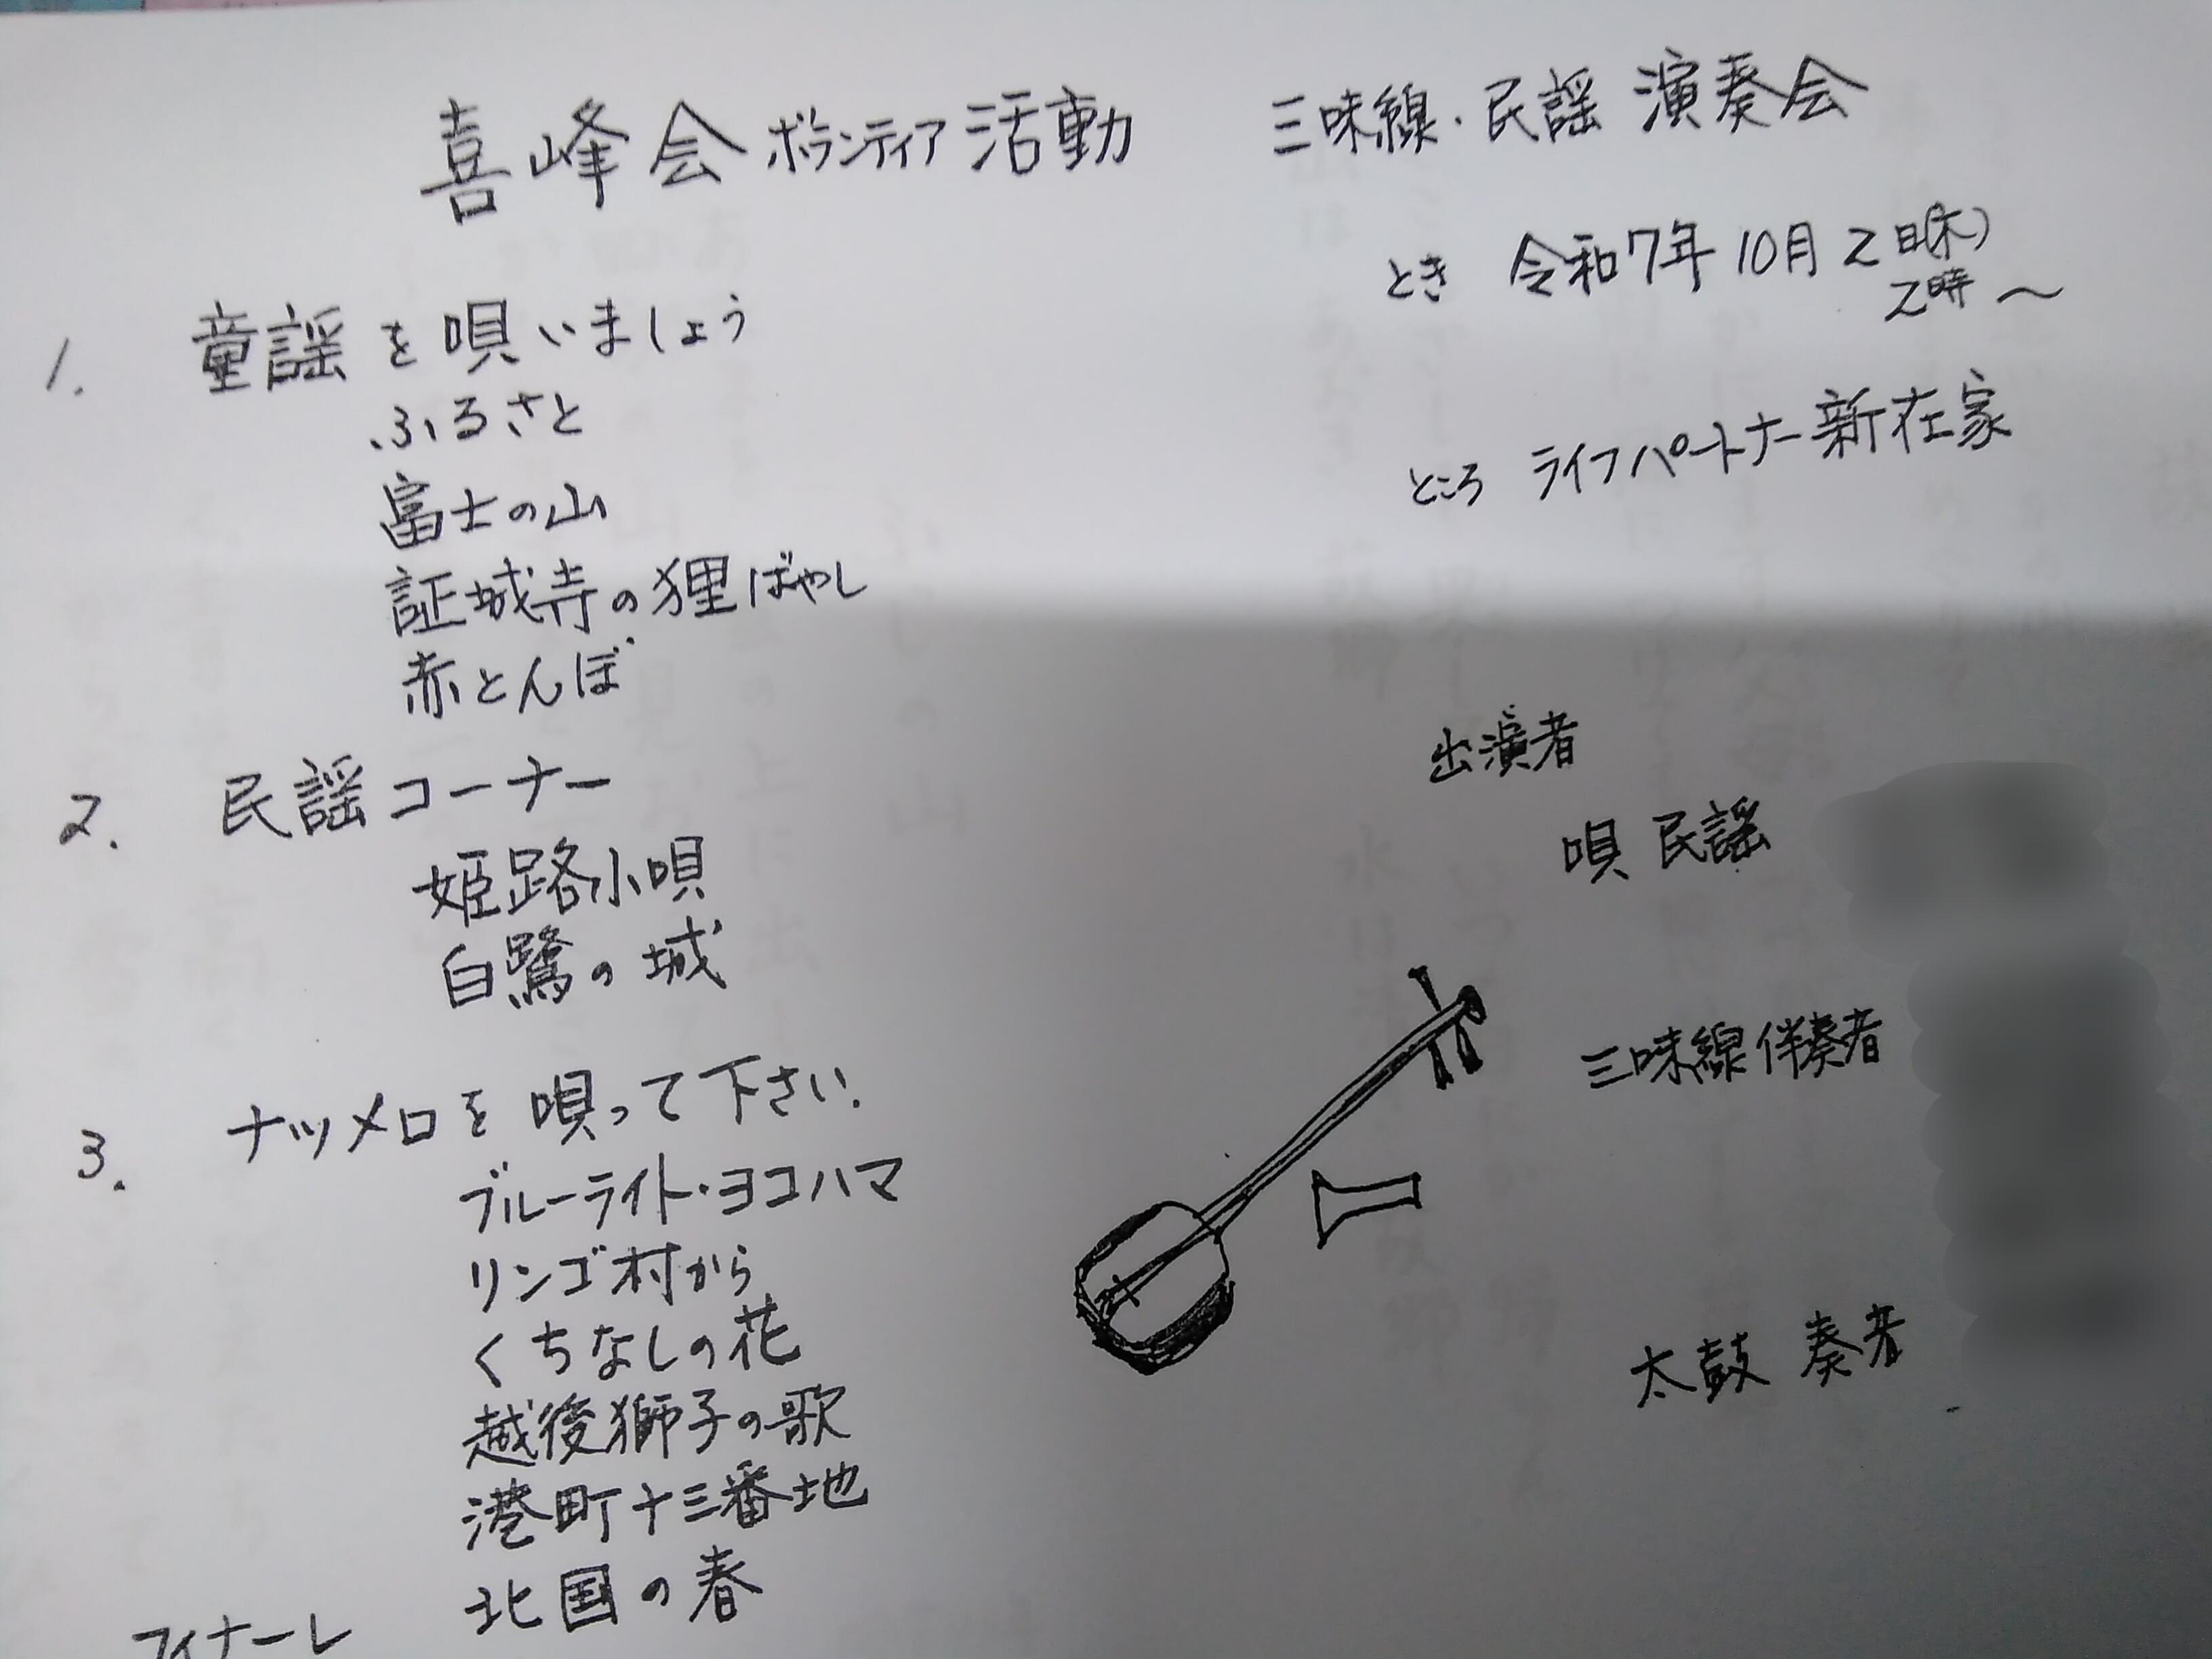 喜峰会ボランティア活動 三味線・民謡 演奏会
とき 令和7年10月2日(木)
2時〜
ところ ライフパートナー新在家
1. 童謡を唄いましょう
ふるさと
富士の山
証城寺の狸ばやし
赤とんぼ
2. 民謡コーナー
姫路小唄
白鷺の城
3. ナツメロを唄って下さい.
ブルーライト・ヨコハマ
リンゴ村から
くちなしの花
越後獅子の歌
港町十三番地
北国の春
フィナーレ
出演者
唄 民謡
三味線伴奏者
太鼓 奏者